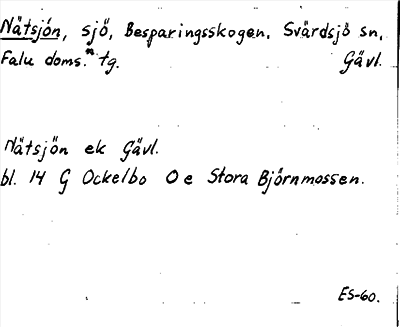 Nätsjön, sjö, Besparingsskogen, Svärdsjö sn,
Falu doms." tg. Gävl.
Nätsjön ek Gävl.
bl. 14 G Ockelbo O e Stora Björnmossen.
ES-60.